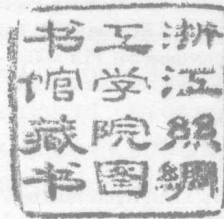 浙江丝绸
工学院图
书馆藏书